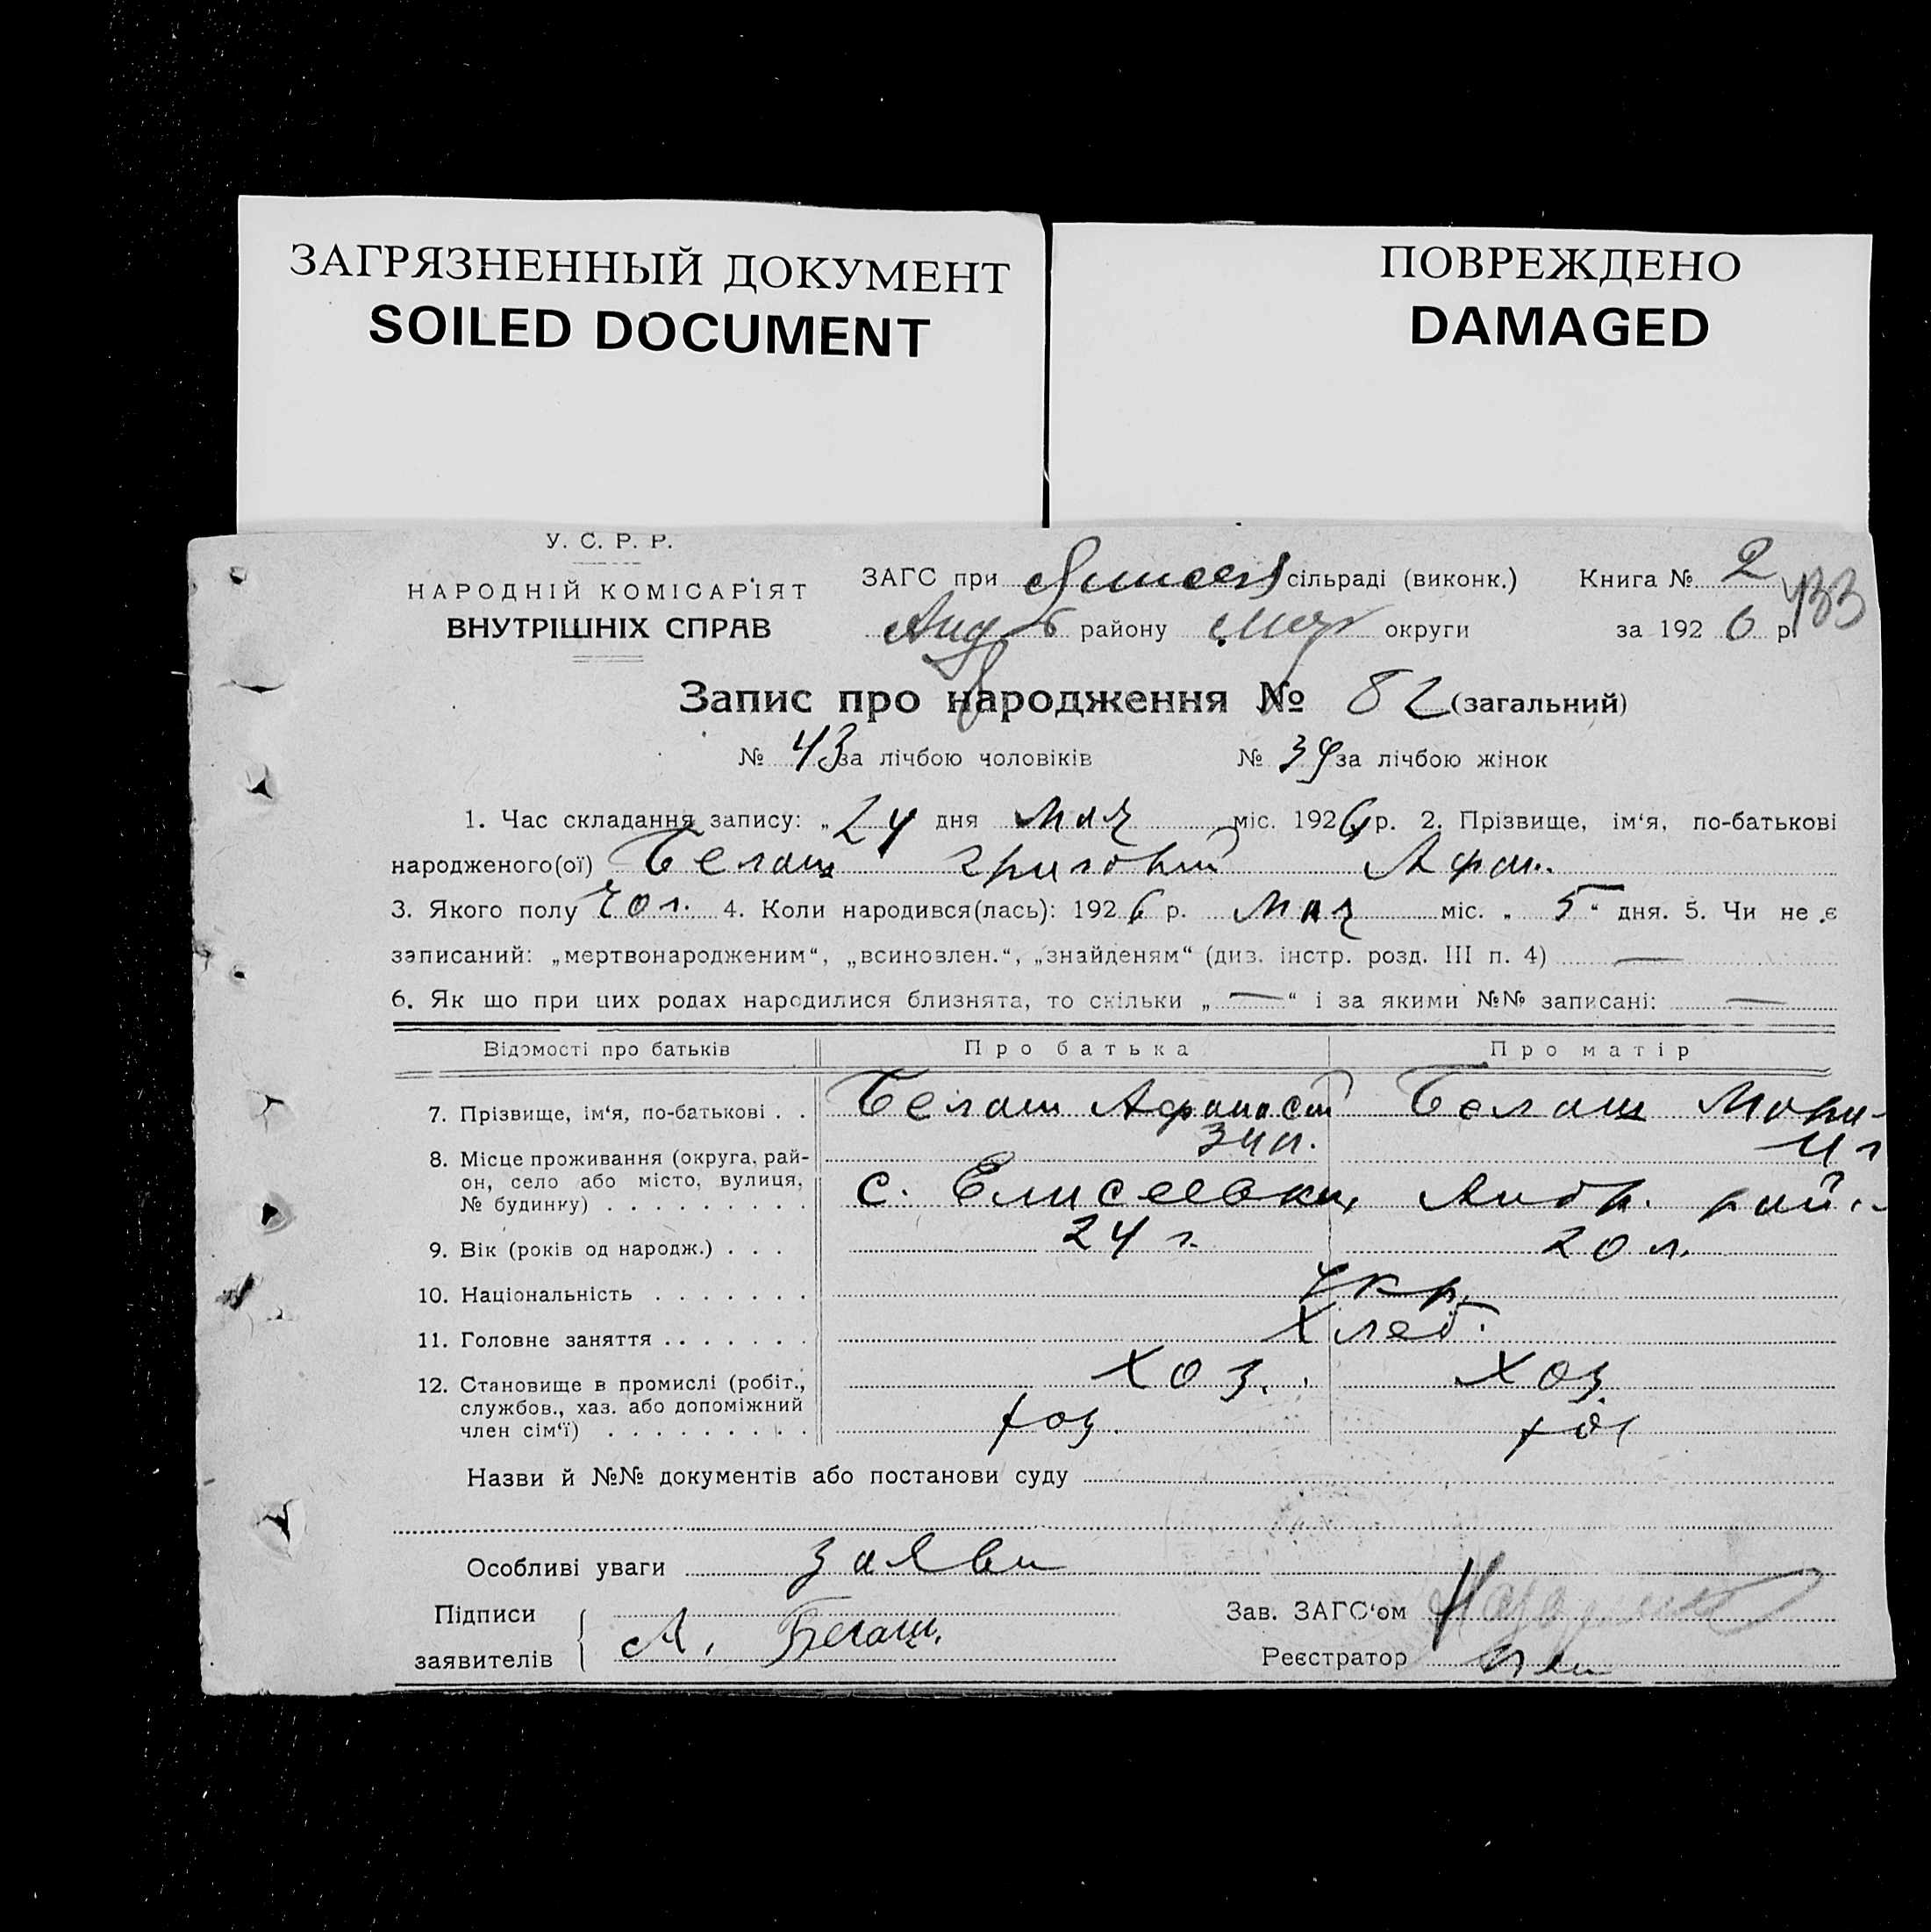 ЗАГРЯЗНЕННЫЙ ДОКУМЕНТ
SOILED DOCUMENT
ПОВРЕЖДЕНО
DAMAGED
У. С. Р. Р.
НАРОДНІЙ КОМІСАР'ІЯТ
ВНУТРІШНІХ СПРАВ
ЗАГС при сільраді (виконк.) Книга № 2
району округи за 1926 р. 433
Запис про народження № 82 (загальний)
№ 43 за лічбою чоловіків № 39 за лічбою жінок
1. Час складання запису: „24 дня Мая міс. 1926 р. 2. Прізвище, ім'я, по-батькові
народженого(ої) Белаш Григорий Афан.
3. Якого полу чол. 4. Коли народився(лась): 1926 р. Мая міс. „ 5 “ дня. 5. Чи не є
записаний: „мертвонародженим“, „всиновлен.“, „знайденям“ (див. інстр. розд. III п. 4) —
6. Як що при цих родах народилися близнята, то скільки „ — “ і за якими №№ записані: —
Відомості про батьків Про батька Про матір
7. Прізвище, ім'я, по-батькові . . Белаш Афанасий Белаш Мари-
8. Місце проживання (округа, рай-
он, село або місто, вулиця,
№ будинку) . . . . . . . . . с. Елисеевки, Андр. рай..
9. Вік (років од народж.) . . . 24 г. 20 л.
10. Національність . . . . . . . Укр.
11. Головне заняття . . . . . . . Хлеб.
12. Становище в промислі (робіт., хоз. хоз.
службов., хаз. або допоміжний
член сім'ї) . . . . . . . . . хоз. хоз
Назви й №№ документів або постанови суду
Особливі уваги заяви
Підписи
заявителів А. Белаш.
Зав. ЗАГС'ом
Реєстратор